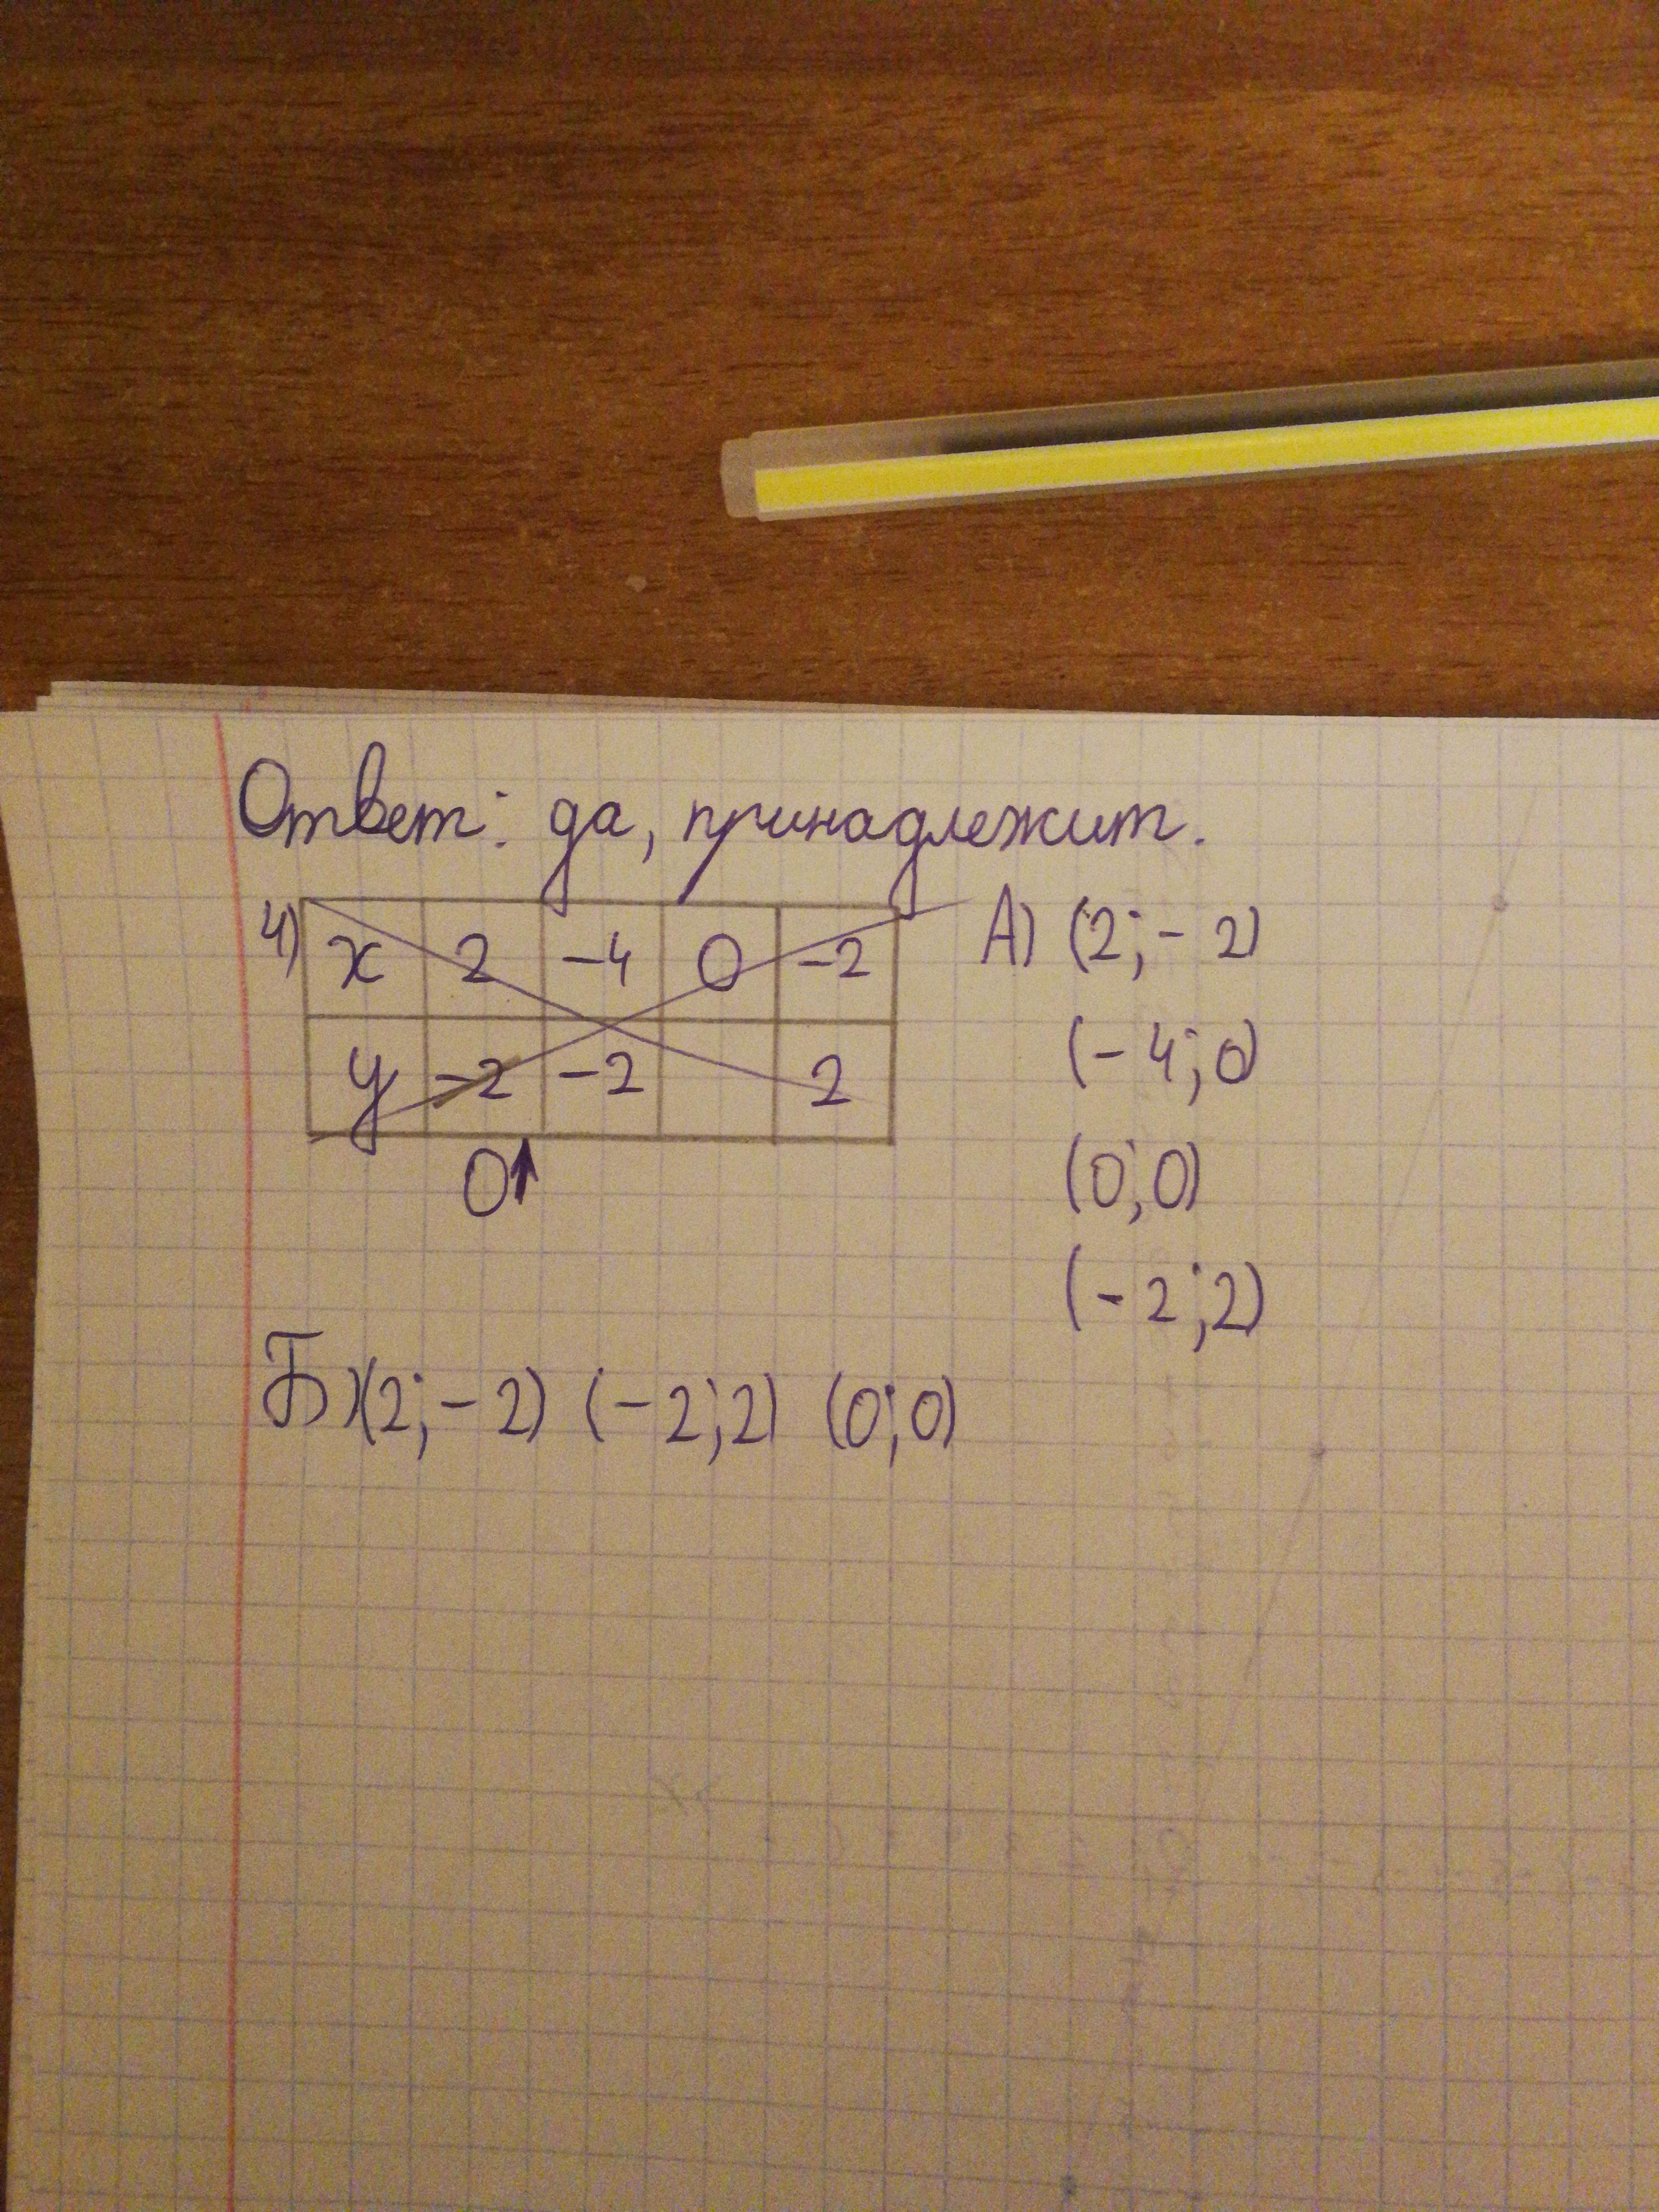 Ответ: да, принадлежит.
4)
x 2 -4 0 -2
y -2 -2 2
0↑
А) (2; - 2)
(- 4; 0)
(0; 0)
(- 2; 2)
Б) (2; - 2) (- 2; 2) (0; 0)